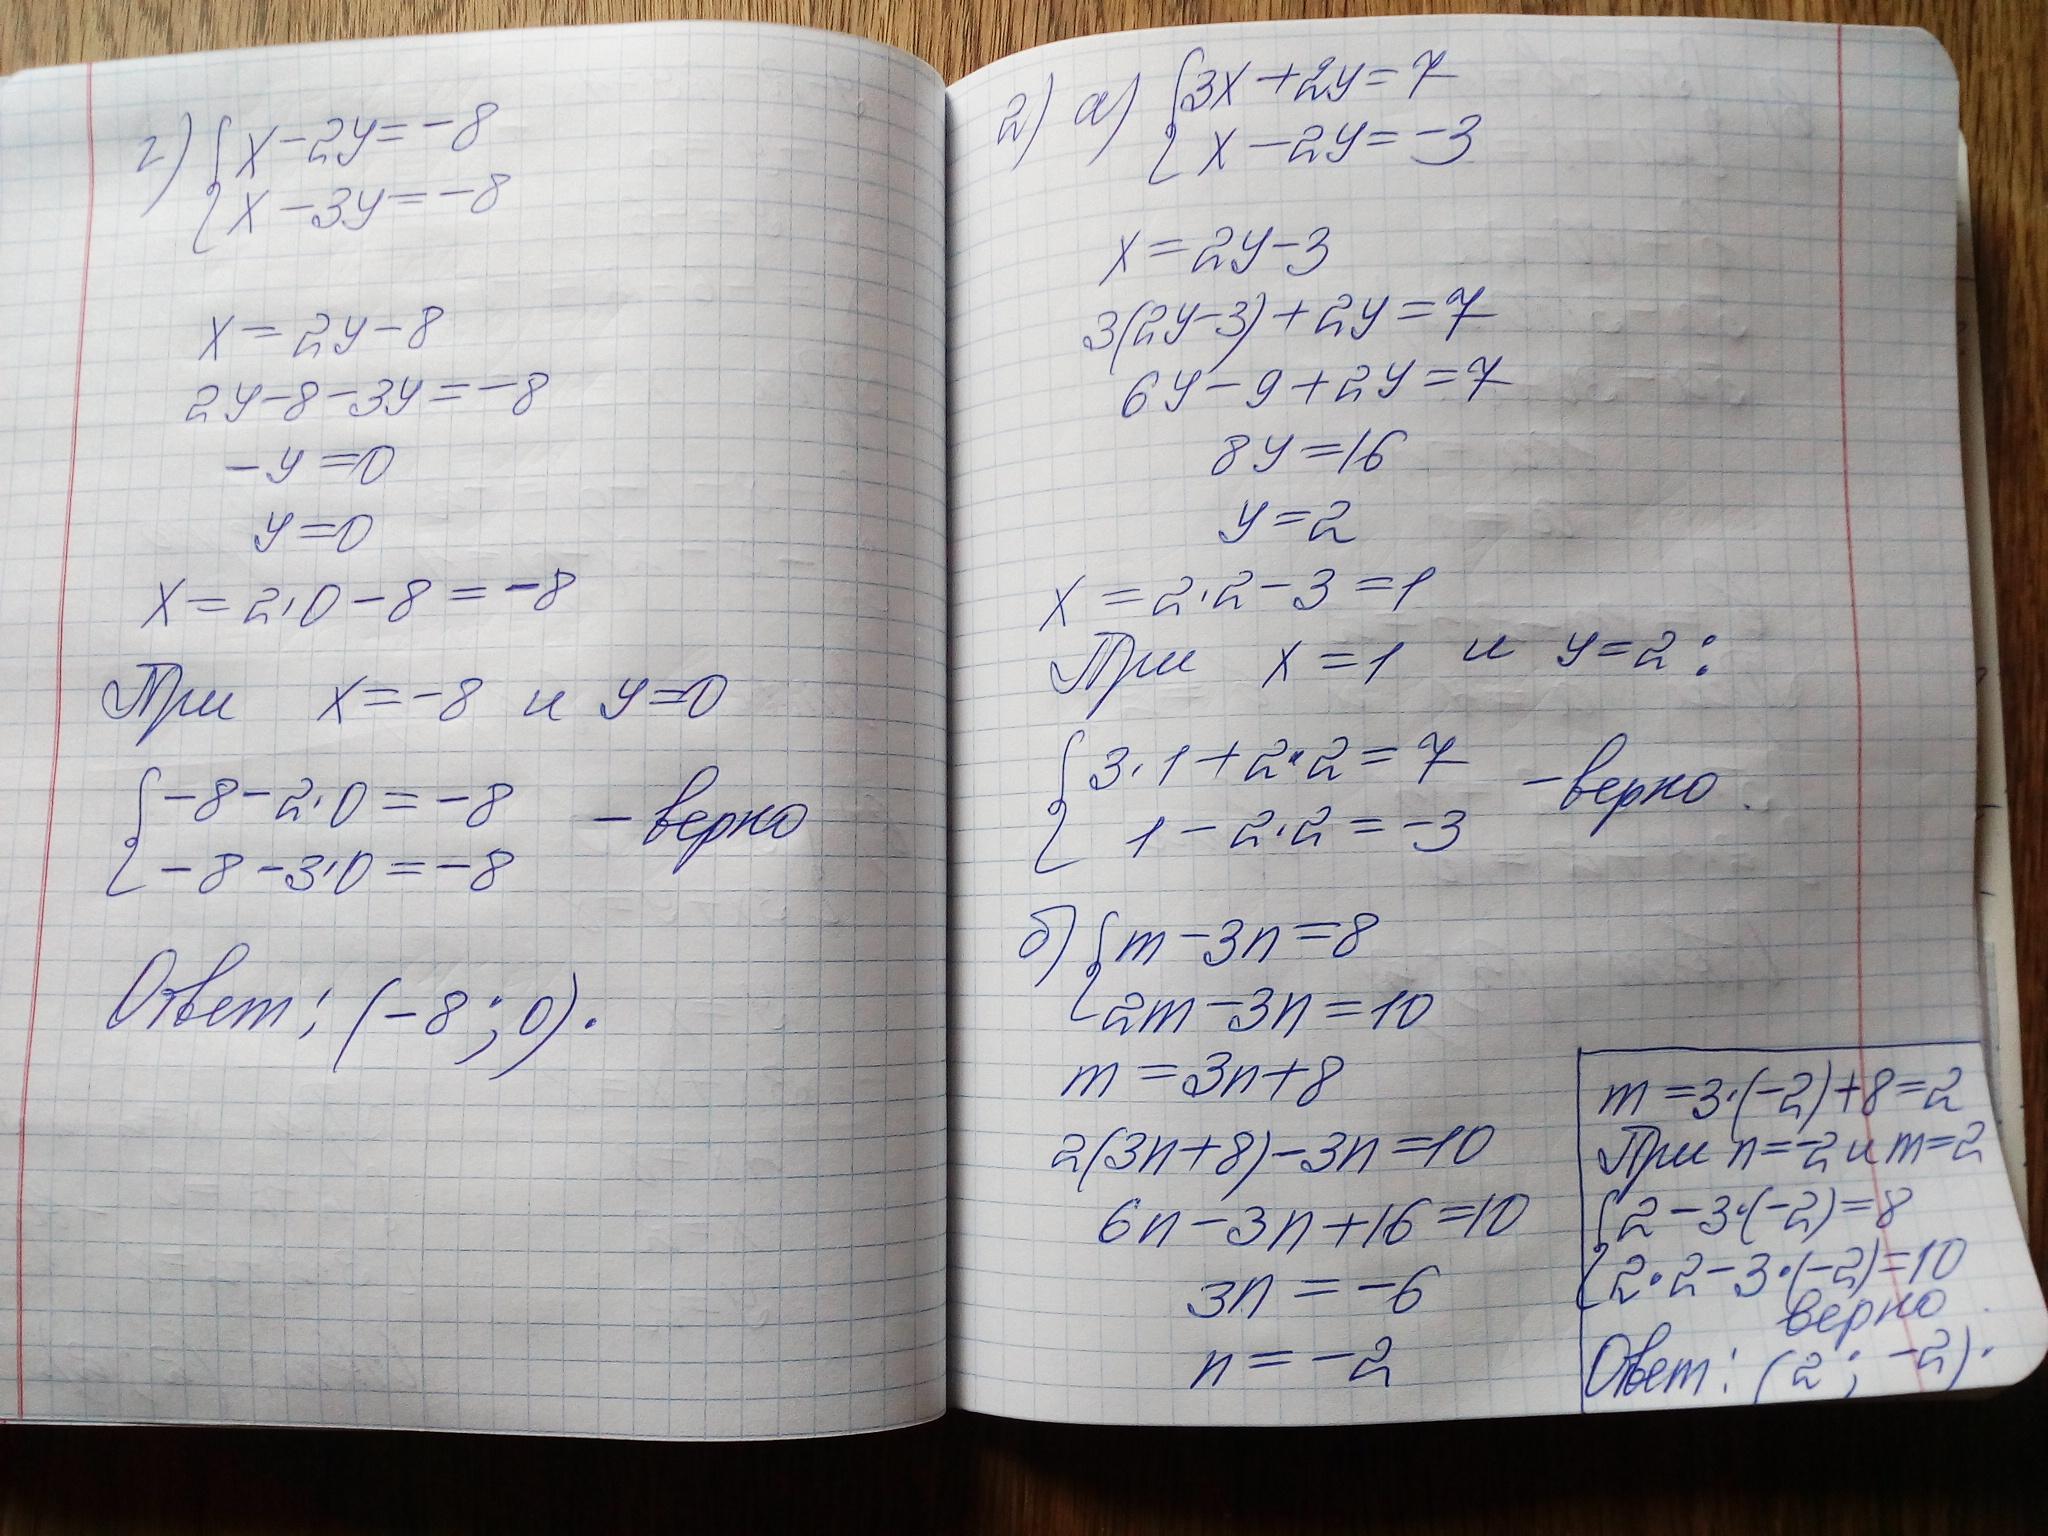 г) { x - 2y = -8
x - 3y = -8
x = 2y - 8
2y - 8 - 3y = -8
-y = 0
y = 0
x = 2·0 - 8 = -8
При x = -8 и y = 0
{ -8 - 2·0 = -8 - верно
-8 - 3·0 = -8
Ответ: (-8; 0).
2) а) { 3x + 2y = 7
x - 2y = -3
x = 2y - 3
3(2y - 3) + 2y = 7
6y - 9 + 2y = 7
8y = 16
y = 2
x = 2·2 - 3 = 1
При x = 1 и y = 2:
{ 3·1 + 2·2 = 7 - верно.
1 - 2·2 = -3
б) { m - 3n = 8
2m - 3n = 10
m = 3n + 8
2(3n + 8) - 3n = 10
6n - 3n + 16 = 10
3n = -6
n = -2
m = 3·(-2) + 8 = 2
При n = -2 и m = 2
{ 2 - 3·(-2) = 8
2·2 - 3·(-2) = 10
верно.
Ответ: (2; -2).